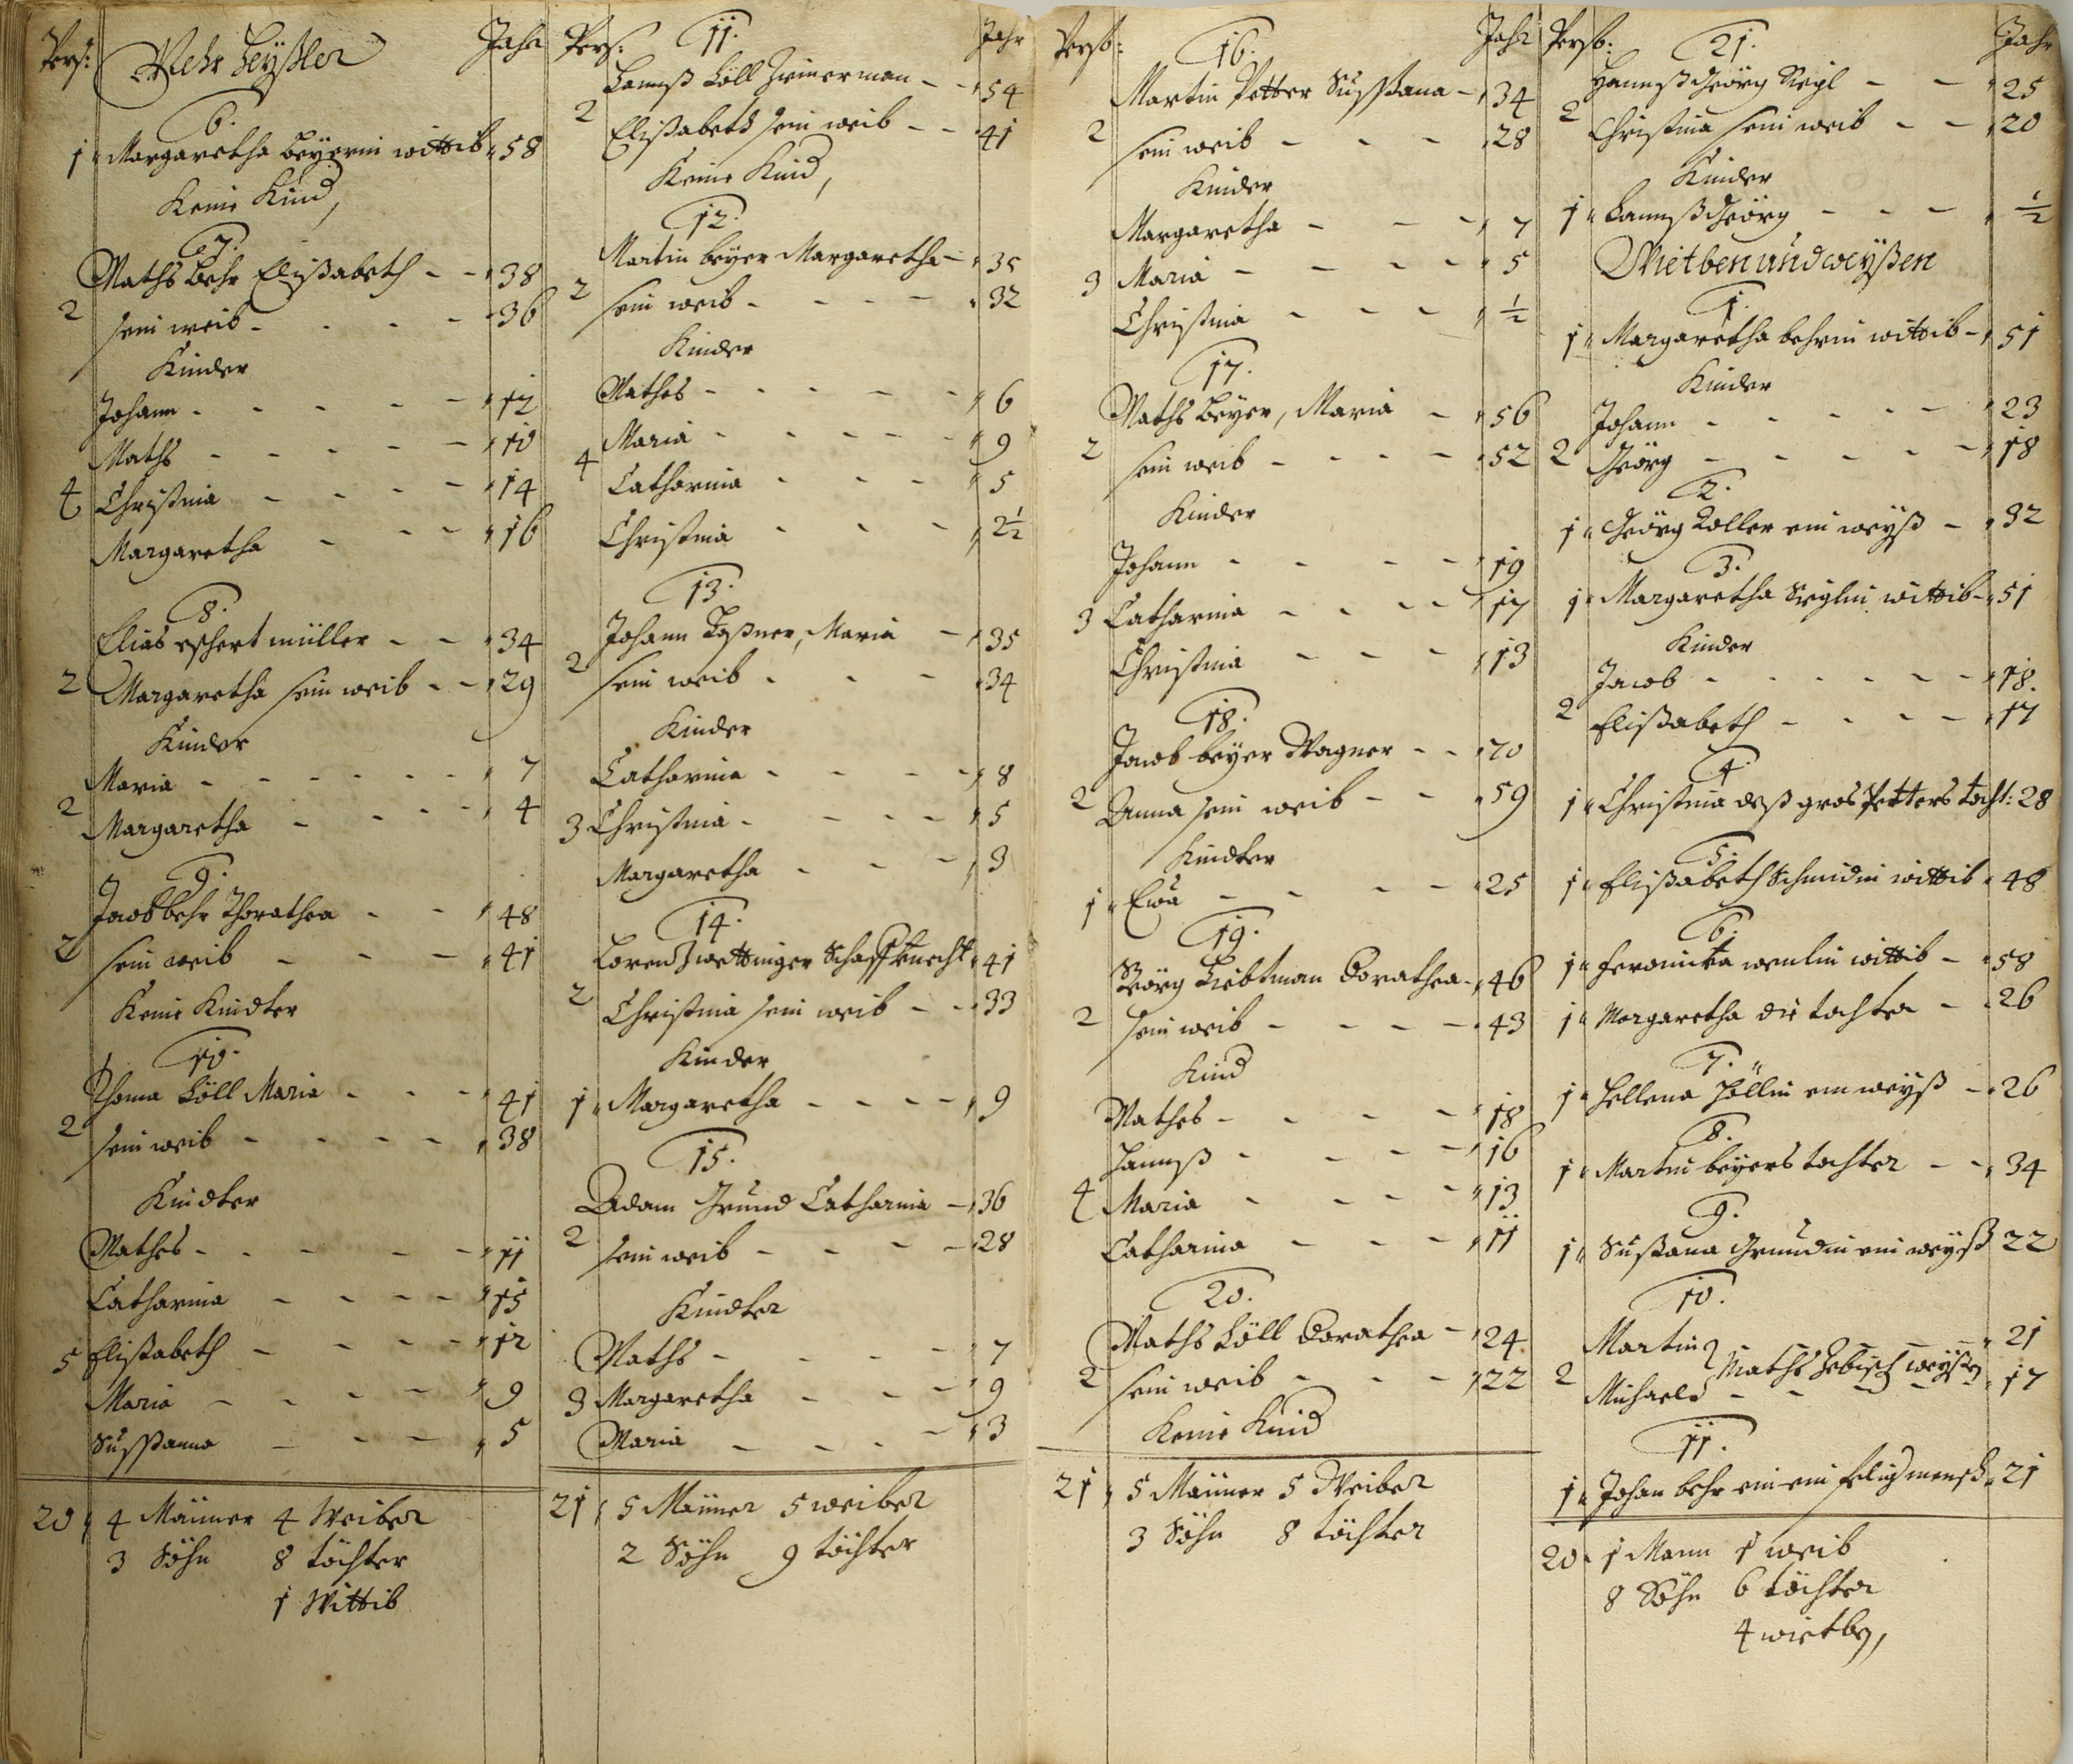 Pers: Mehr beyßler Jahr
6.
1 " Margaretha beyerin wittib " 58
Keine Kind,
7.
Maths behr Elißabeth - - " 38
2 sein weib - - - - " 36
Kinder
Johann - - - - - " 12
Maths - - - - - " 10
4 Christina - - - - " 14
Margaretha - - - " 16
8.
Elias eschert müller - - " 34
2 Margaretha sein weib - - " 29
Kinder
Maria - - - - - - " 7
2 Margaretha - - - - " 4
9.
Jacob behr Thorathea - - " 48
2 sein weib - - - " 41
Keine Kindter
10.
Thoma Löll Maria - - - " 41
2 sein weib - - - - " 38
Kindter
Mathes - - - - - " 11
Catharina - - - - " 15
5 Elißabeth - - - - " 12
Maria - - - - " 9
Sussßanna - - - " 5
20, 4 Männer 4 Weiber
3 Söhn 8 töchter
1 Wittib
Pers: 11. Jahr
Hannß Löll Zimerman - - " 54
2 Elißabeth sein weib - - " 41
Keine Kind,
12.
Martin beyer Margaretha - " 35
2 sein weib - - - - " 32
Kinder
Mathes - - - - - " 6
Maria - - - - - " 9
4 Catharina - - - " 5
Christina - - - " 2½
13.
Johann Maria - " 35
2 sein weib - - - " 34
Kinder
Catharina - - - - " 8
3 Christina - - - - " 5
Margaretha - - - " 3
14.
Lorentz wettinger Schaffknecht " 41
2 Christina sein weib - - " 33
Kinder
1 " Margaretha - - - - " 9
15.
Adam Grund Catharina - " 36
2 sein weib - - - - " 28
Kindter
Maths - - - - " 7
3 Margaretha - - - " 9
Maria - - - - " 3
21, 5 Männer 5 weiber
2 Söhn 9 töchter
Persb: 16. Jahr
Martin Petter Sussßana - " 34
2 sein weib - - - " 28
Kinder
Margaretha - - - " 7
3 Maria - - - - " 5
Christina - - - " ½
17.
Maths beyer, Maria - " 56
2 sein weib - - - - " 52
Kinder
Johann - - - - " 19
3 Catharina - - - - " 17
Christina - - - " 13
18.
Jacob beyer Wagner - - " 70
2 Anna sein weib - - " 59
Kindter
1 " Eva - - - - " 25
19.
Görg Liebtman Dorathea - " 46
2 sein weib - - - - " 43
Kind
Mathes - - - - " 18
Hannß - - - - " 16
4 Maria - - - - " 13
Catharina - - - " 11
20.
Maths Löll Dorathea - " 24
2 sein weib - - - " 22
Keine Kind
21, 5 Männer 5 Weiber
3 Söhn 8 töchter
Persb: 21. Jahr
Hannß Geörg Siegl - - " 25
2 Christina sein weib - - " 20
Kinder
1 " Hannß Geörg - - - " ½
Wietben und weyßen
1.
1 " Margaretha behrin wittib - " 51
Kinder
Johann - - - - - " 23
2 Geörg - - - - - " 18
2.
1 " Geörg Zoller ein weyß - " 32
3.
1 " Margaretha Sieglin wittib - " 51
Kinder
Jacob - - - - - - " 18.
2 Elißabeth - - - - " 17
4.
1 " Christina deß gros Petters tocht: 28
5.
1 " Elißabeth Schmidin wittib " 48
6.
1 " feronicka wenlin wittib - " 58
1 " Margaretha die tochter - " 26
7.
1 " Hellena Höllin ein weyß - " 26
8.
1 " Martin beyers tochter - - " 34
9.
1 " Sußana Grundin ein weyß 22
10.
Martin - - - " 21
2 Maths weyßen
Michael - - - " 17
11.
1 " Johan behr ein mensch " 21
20 " 1 Mann 1 weib
8 Söhn 6 töchter
4 wietben,